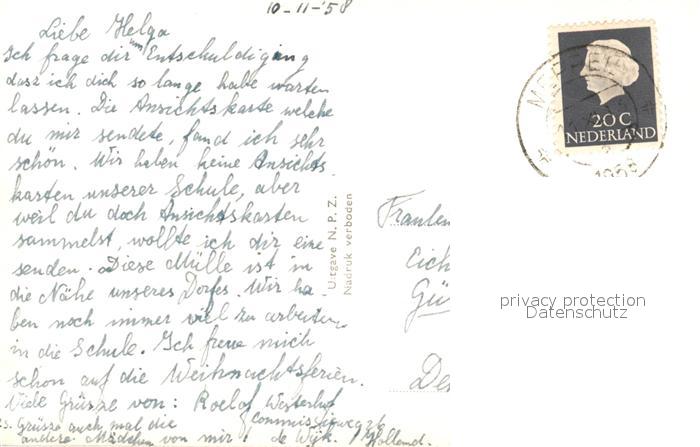 10-11-'58
Liebe Helga
Ich frage dir um Entschuldigung
dasz ich dich so lange habe warten
lassen. Die Ansichtskarte welche
du mir sendete, fand ich sehr
schön. Wir haben keine Ansichts
karten unserer Schule, aber
weil du doch Ansichtskarten
sammelst, wollte ich dir eine
senden. Diese Mülle ist in
die Nähe unseres Dorfes. Wir ha-
ben noch immer viel zu arbeiten
in die Schule. Ich freue mich
schon auf die Weihnachtsferien.
Viele Grüsze von: Roelof Westerhof
Commissieweg
P.S. Grüsze auch mal die
andere Mädchen von mir! de Wijk. Holland.
Uitgave N.P.Z.
Nadruk verboden
20C
NEDERLAND
MEPPEL
Eich
Gü
De
privacy protection
Datenschutz